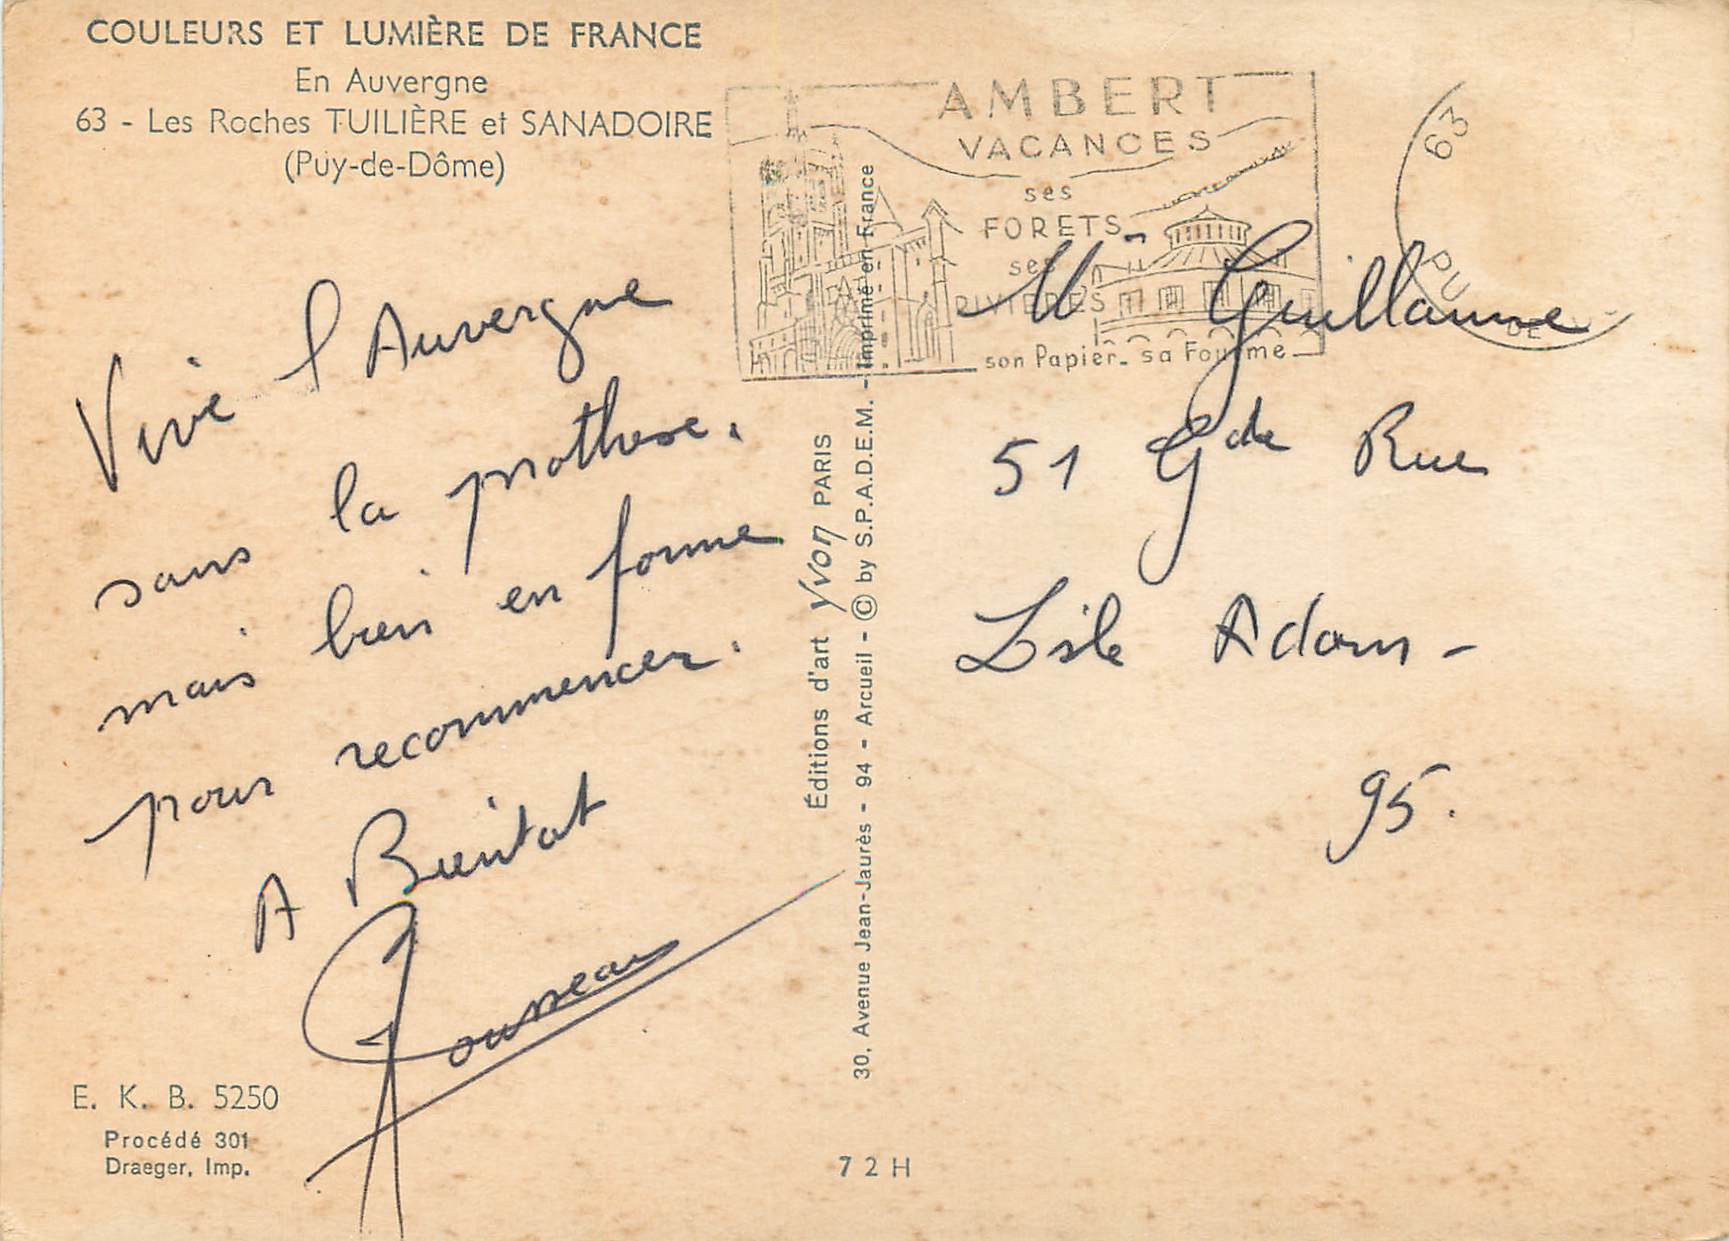 COULEURS ET LUMIÈRE DE FRANCE
En Auvergne
63 - Les Roches TUILIÈRE et SANADOIRE
(Puy-de-Dôme)
Vive l'Auvergne
sans la prothese.
mais bien en forme
pour recommencer.
A Bientot
Rousseau
E. K. B. 5250
Procédé 301
Draeger, Imp.
Éditions d'art Yvon PARIS
30, Avenue Jean-Jaurès - 94 - Arcueil - © by S.P.A.D.E.M. - Imprimé en France
72H
AMBERT
VACANCES
ses
FORETS
ses
RIVIERES
son Papier_ sa Fourme
63
PUY DE
Mr Guillaume
51 Gde Rue
L'isle Adam -
95.